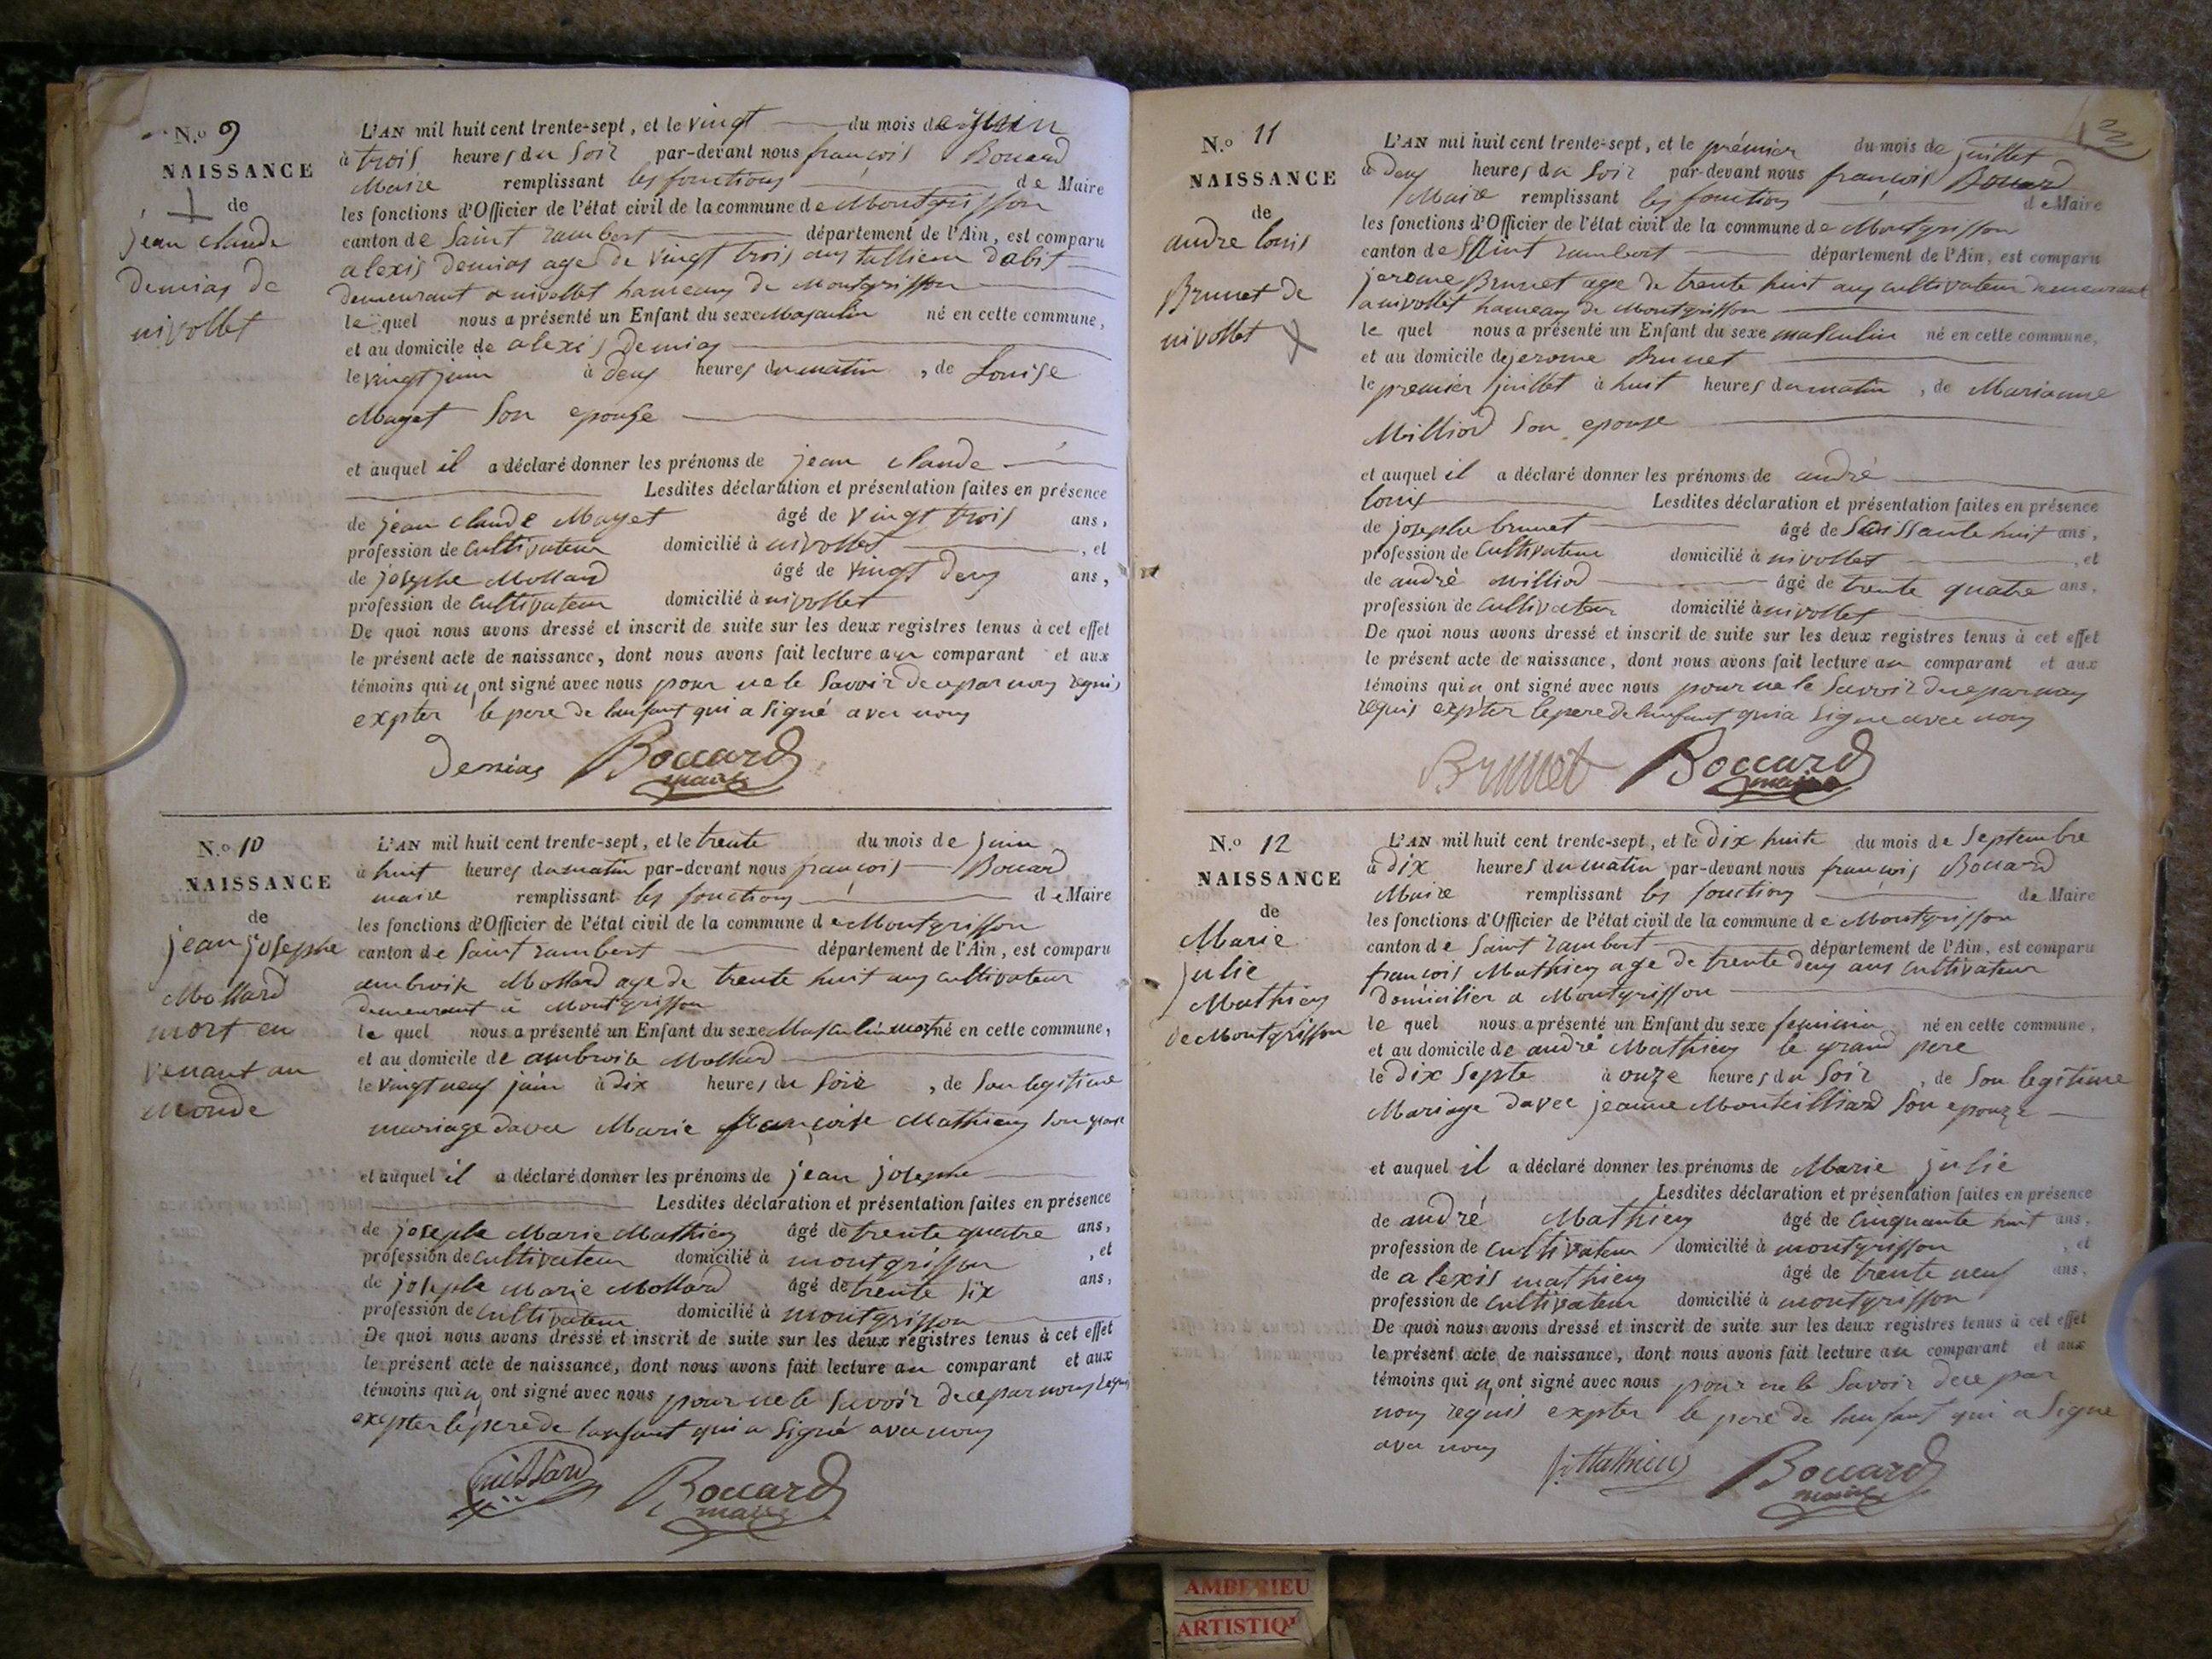 N.º 9
NAISSANCE
de
jean claude
Demias de
nivollet
L'AN mil huit cent trente-sept, et le vingt du mois de juin
à trois heures du soir par-devant nous françois Bouard
Maire remplissant les fonctions de Maire
les fonctions d'Officier de l'état civil de la commune de Montgriffon
canton de Saint rambert département de l'Ain, est comparu
alexis demias age de vingt trois ans tallieur dabit
demeurant a nivollet hameaux de Montgriffon
le quel nous a présenté un Enfant du sexe Masculin né en cette commune,
et au domicile de alexis demias
le vingt juin à deux heures du matin, de Louise
Maget son epouse
et auquel il a déclaré donner les prénoms de jean claude
Lesdites déclaration et présentation faites en présence
de jean claude Maget âgé de vingt trois ans,
profession de cultivateur domicilié à nivollet, et
de josephe Mollard âgé de vingt deux ans,
profession de cultivateur domicilié à nivollet
De quoi nous avons dressé et inscrit de suite sur les deux registres tenus à cet effet
le présent acte de naissance, dont nous avons fait lecture au comparant et aux
témoins qui n'ont signé avec nous pour ne le savoir de ce par nous requis
expter le pere de lanfant qui a signé avec nous
Demias Bouard
maire
N.º 10
NAISSANCE
de
jean josephe
Mollard
mort en
venant au
monde
L'AN mil huit cent trente-sept, et le trente du mois de juin
à huit heures du matin par-devant nous françois Bouard
maire remplissant les fonctions de Maire
les fonctions d'Officier de l'état civil de la commune de Montgriffon
canton de Saint rambert département de l'Ain, est comparu
ambroise Mollard age de trente huit ans cultivateur
demeurant à Montgriffon
le quel nous a présenté un Enfant du sexe Masculin mort né en cette commune,
et au domicile de ambroise Mollard
le vingt neuf juin à dix heures du soir, de son legitime
mariage davec Marie françoise Mathieu son epouse
et auquel il a déclaré donner les prénoms de jean josephe
Lesdites déclaration et présentation faites en présence
de josephe Marie Mathieu âgé de trente quatre ans,
profession de cultivateur domicilié à montgriffon, et
de josephe Marie Mollard âgé de trente six ans,
profession de cultivateur domicilié à montgriffon
De quoi nous avons dressé et inscrit de suite sur les deux registres tenus à cet effet
le présent acte de naissance, dont nous avons fait lecture au comparant et aux
témoins qui n'ont signé avec nous pour ne le savoir de ce par nous requis
expter le pere de lanfant qui a signé avec nous
Bouard
maire
N.º 11
NAISSANCE
de
andre louis
Brunet de
nivollet
L'AN mil huit cent trente-sept, et le prémier du mois de juillet
à deux heures du soir par-devant nous françois Bouard
Maire remplissant les fonctions de Maire
les fonctions d'Officier de l'état civil de la commune de Montgriffon
canton de Saint rambert département de l'Ain, est comparu
jerome Brunet age de trente huit ans cultivateur demeurant
a nivollet hameaux de Montgriffon
le quel nous a présenté un Enfant du sexe masculin né en cette commune,
et au domicile de jerome Brunet
le premier juillet à huit heures du matin, de Marianne
Milliod son epouse
et auquel il a déclaré donner les prénoms de andré
louis Lesdites déclaration et présentation faites en présence
de josephe brunet âgé de soissante huit ans,
profession de cultivateur domicilié à nivollet, et
de andré Milliod âgé de trente quatre ans,
profession de cultivateur domicilié à nivollet
De quoi nous avons dressé et inscrit de suite sur les deux registres tenus à cet effet
le présent acte de naissance, dont nous avons fait lecture au comparant et aux
témoins qui n'ont signé avec nous pour ne le savoir de ce par nous
requis expter le pere de lanfant qui a signe avec nous
Brunet Bouard
maire
N.º 12
NAISSANCE
de
Marie
julie
Mathieu
de Montgriffon
L'AN mil huit cent trente-sept, et le dix huite du mois de Septembre
à dix heures du matin par-devant nous françois Bouard
Maire remplissant les fonctions de Maire
les fonctions d'Officier de l'état civil de la commune de Montgriffon
canton de Saint rambert département de l'Ain, est comparu
françois Mathieu age de trente deux ans cultivateur
domicilier a Montgriffon
le quel nous a présenté un Enfant du sexe feminin né en cette commune,
et au domicile de andré Mathieu le grand pere
le dix Septe à onze heures du soir, de son legitime
Mariage davec jeanne Monteilliard son epouze
et auquel il a déclaré donner les prénoms de Marie julie
Lesdites déclaration et présentation faites en présence
de andré Mathieu âgé de cinquante huit ans,
profession de cultivateur domicilié à montgriffon, et
de alexis mathieu âgé de trente neuf ans,
profession de cultivateur domicilié à montgriffon
De quoi nous avons dressé et inscrit de suite sur les deux registres tenus à cet effet
le présent acte de naissance, dont nous avons fait lecture au comparant et aux
témoins qui n'ont signé avec nous pour ne le savoir de ce par
nous requis expter le pere de lanfant qui a signe
avec nous
Mathieu Bouard
maire
AMBERIEU
ARTISTIQ